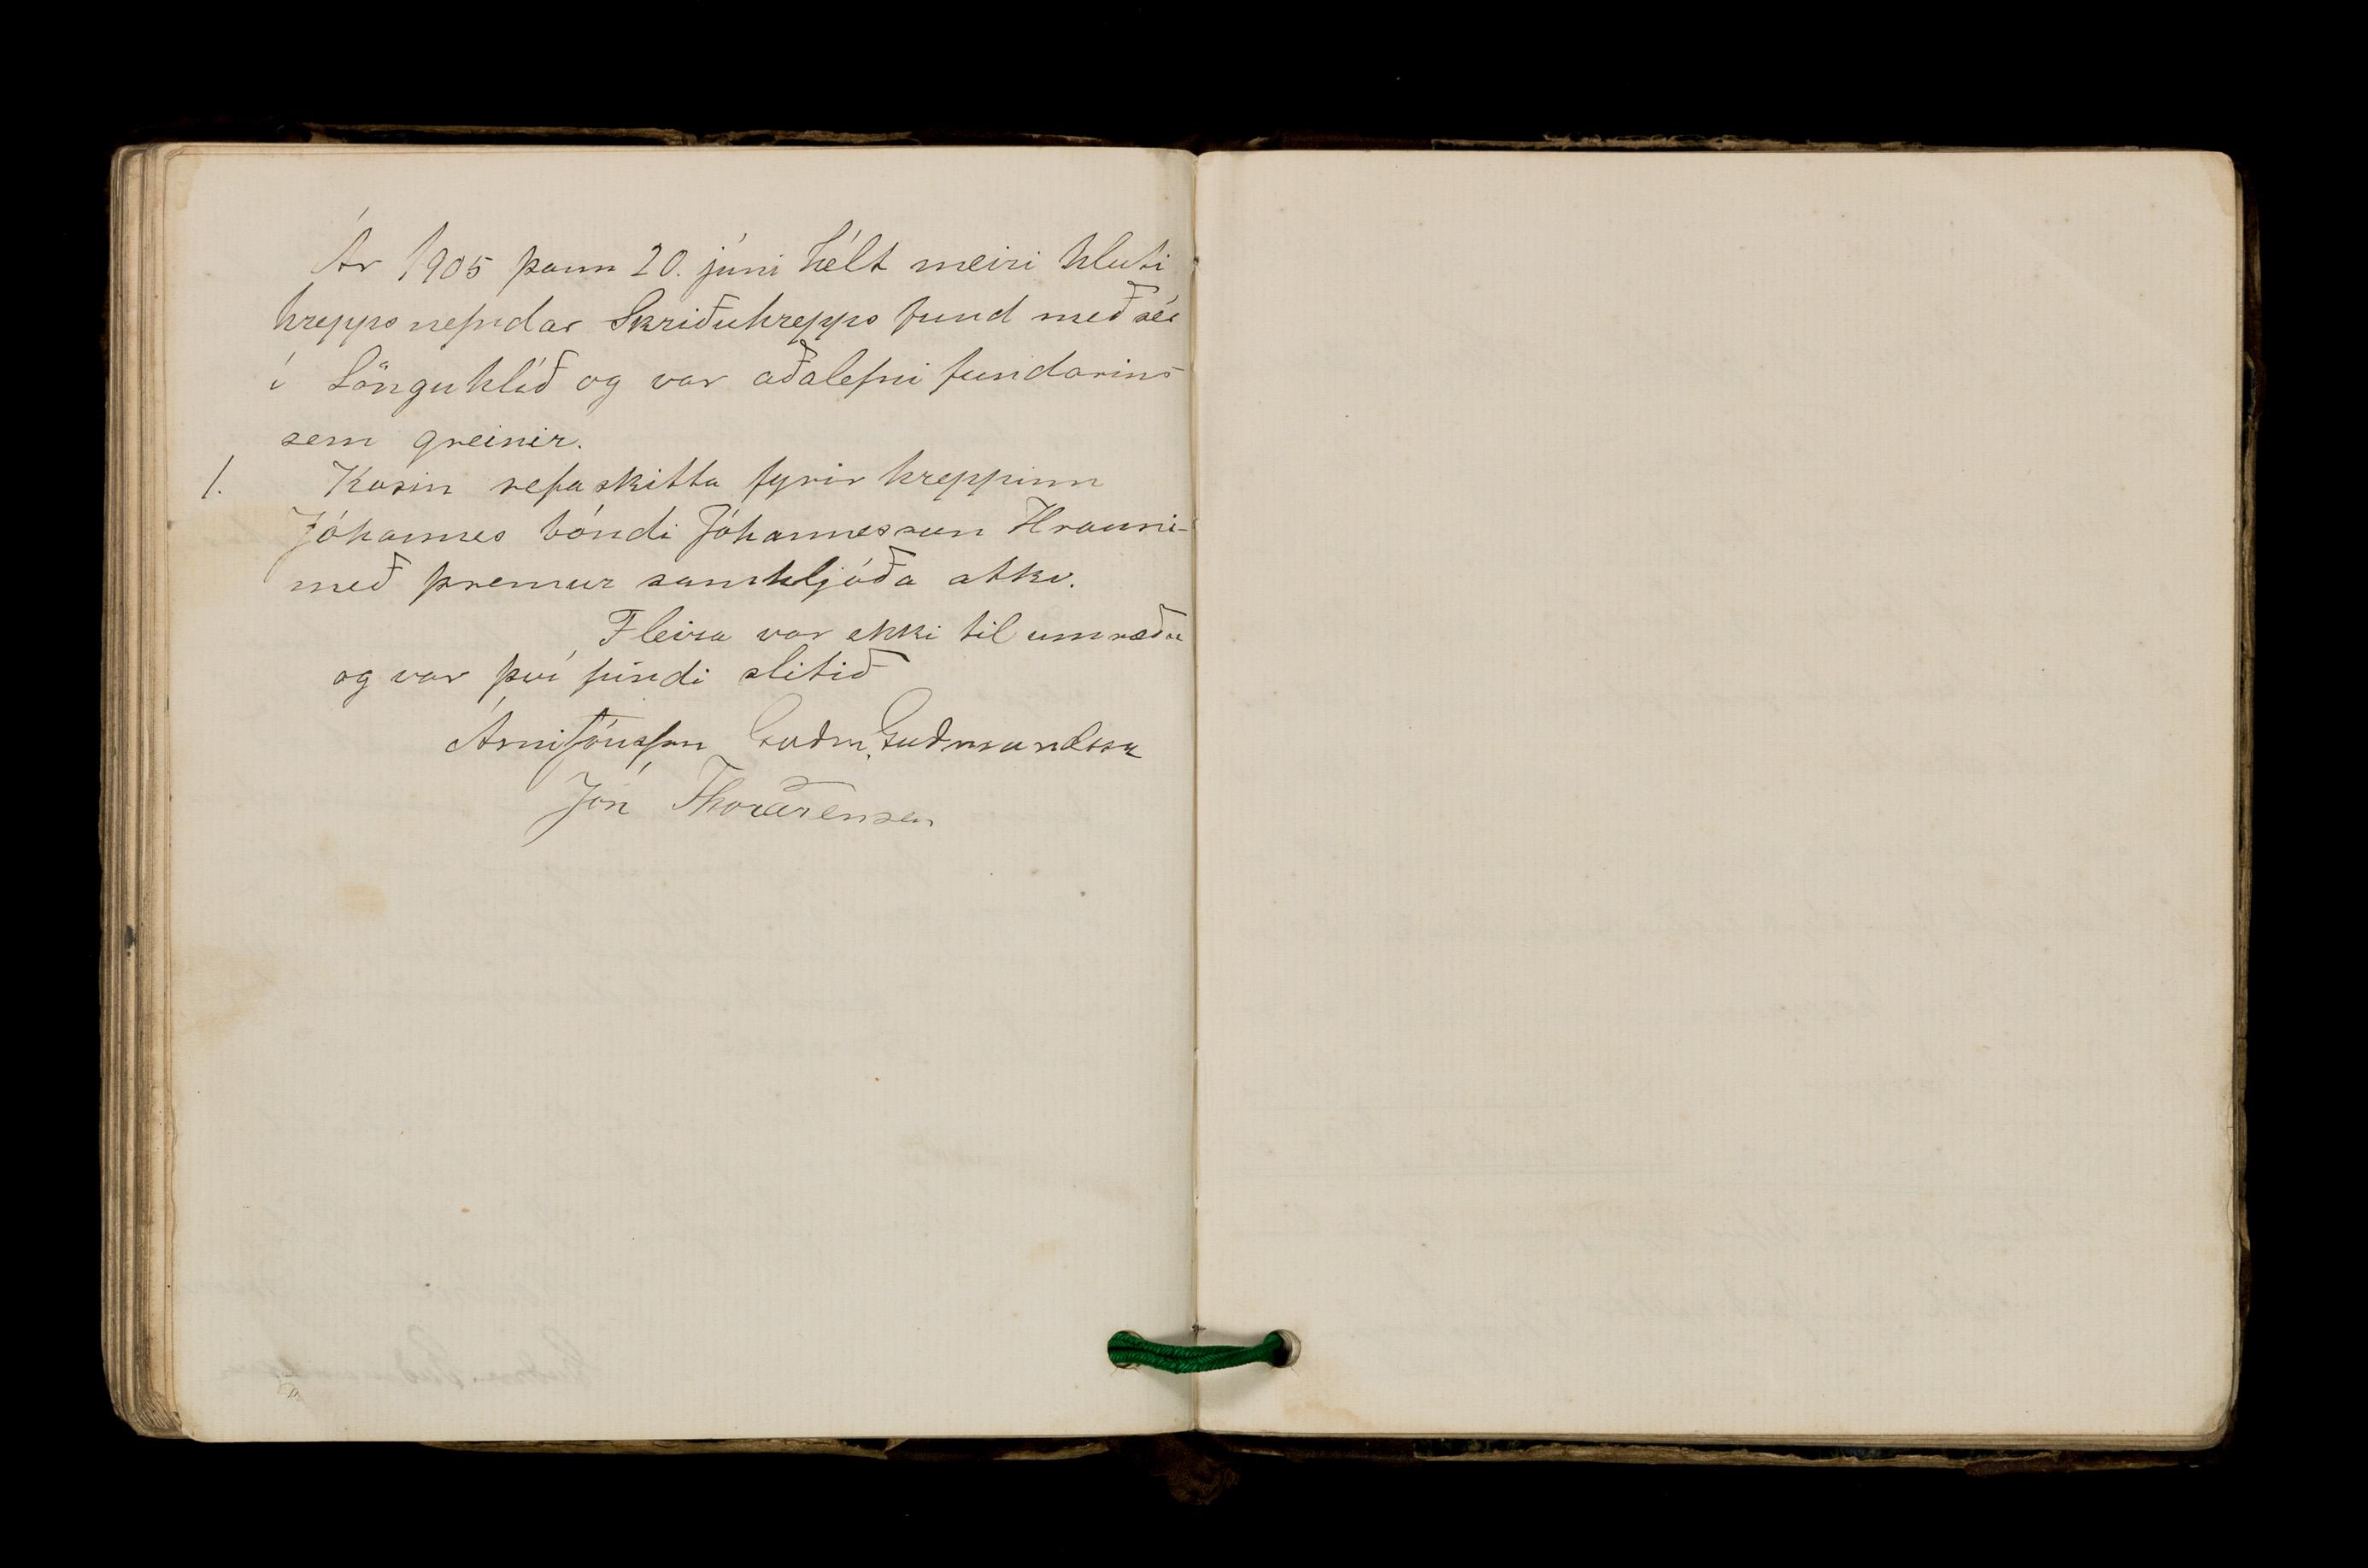 Ár 1905 þann 20. júní hélt meiri hluti
hreppsnefndar Skriðuhrepps fund með sér
í Lönguhlíð og var aðalefni fundarins
sem greinir.
1. Kosin refaskitta fyrir hreppinn
Jóhannes bóndi Jóhannesson Hrauni
með þremur samhljóða atkv.
Fleira var ekki til umræðu
og var því fundi slitið
Árni Jónsson Guðm. Guðmundsson
Jón Thorarensen